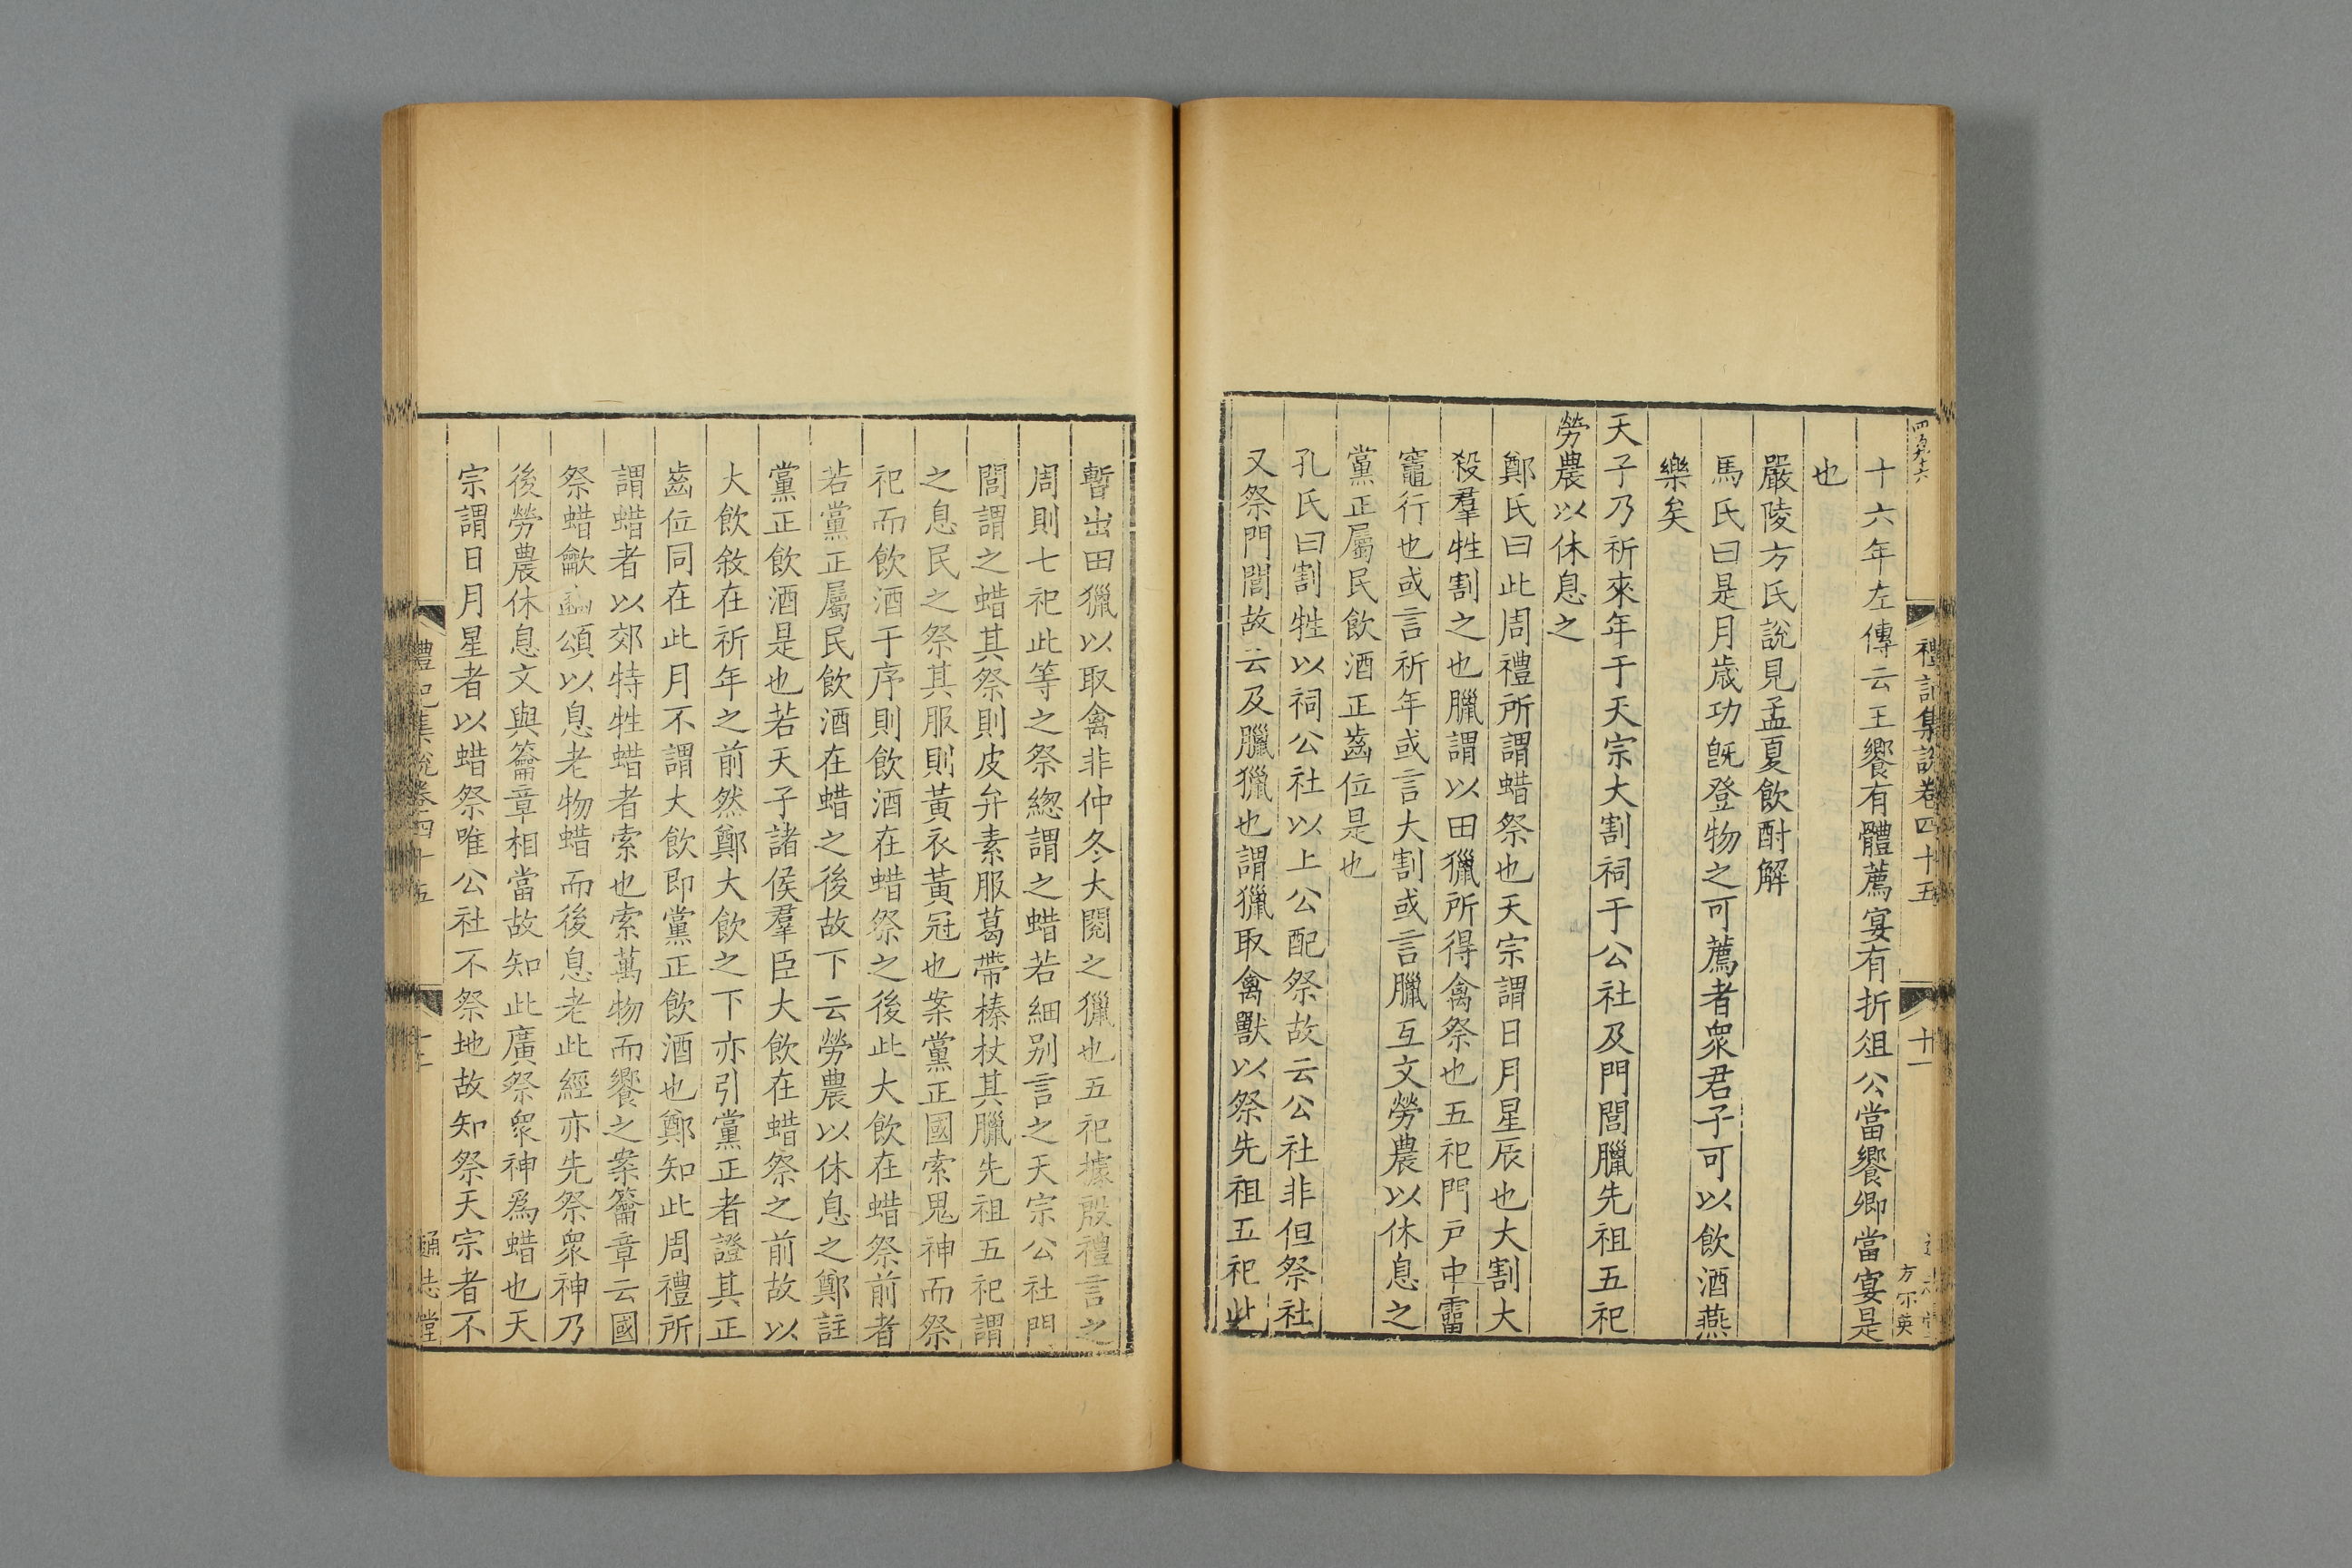 禮記集說卷四十五
廿一
十六年左傳云王饗有體薦宴有折俎公當饗卿當宴是
也
嚴陵方氏說見孟夏飲酎解
馬氏曰是月歲功旣登物之可薦者衆君子可以飲酒燕
樂矣
天子乃祈來年于天宗大割祠于公社及門閭臘先祖五祀
勞農以休息之
鄭氏曰此周禮所謂蜡祭也天宗謂日月星辰也大割大
殺羣牲割之也臘謂以田獵所得禽祭也五祀門戸中霤
竈行也或言祈年或言大割或言臘互文勞農以休息之
黨正屬民飲酒正齒位是也
孔氏曰割牲以祠公社以上公配祭故云公社非但祭社
又祭門閭故云及臘獵也謂獵取禽獸以祭先祖五祀此
暫出田獵以取禽非仲冬大閱之獵也五祀據殷禮言之
周則七祀此等之祭緫謂之蜡若細别言之天宗公社門
閭謂之蜡其祭則皮弁素服葛帶榛杖其臘先祖五祀謂
之息民之祭其服則黃衣黃冠也案黨正國索鬼神而祭
祀而飲酒于序則飲酒在蜡祭之後此大飲在蜡祭前者
若黨正屬民飲酒在蜡之後故下云勞農以休息之鄭註
黨正飲酒是也若天子諸侯羣臣大飲在蜡祭之前故以
大飲敘在祈年之前然鄭大飲之下亦引黨正者證其正
齒位同在此月不謂大飲即黨正飲酒也鄭知此周禮所
謂蜡者以郊特牲蜡者索也索萬物而饗之案籥章云國
祭蜡龡豳頌以息老物蜡而後息老此經亦先祭衆神乃
後勞農休息文與籥章相當故知此廣祭衆神爲蜡也天
宗謂日月星者以蜡祭唯公社不祭地故知祭天宗者不
禮記集說卷四十五
通志堂